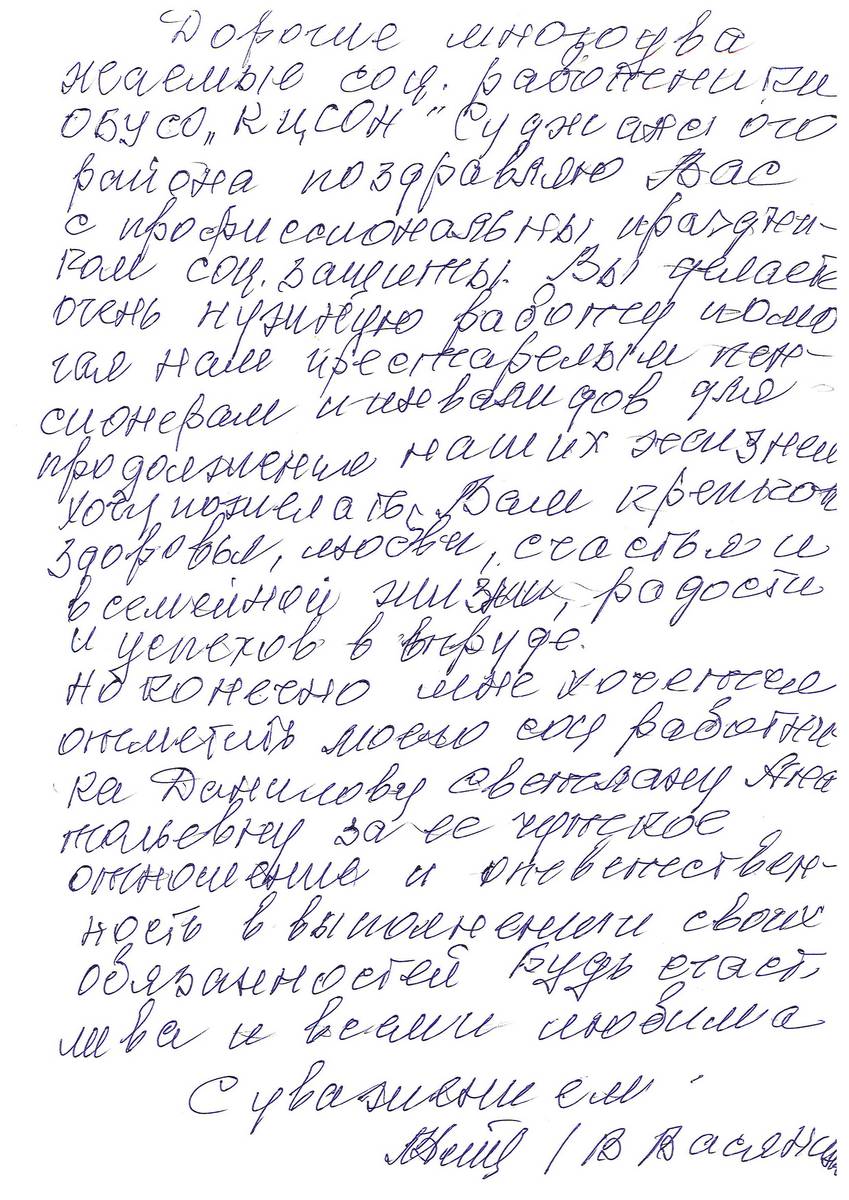 Дорогие многоува
жаемые соц. работники
ОБУСО „КЦСОН" Суджанского
района поздравляю Вас
с профессиональны праздни-
ком соц. защиты. Вы делаете
очень нужную работу помо
гая нам престарелым пен-
сионерам и инвалидов для
продолжение наших жизней
хочу пожелать Вам крепкого
здоровья, любви, счастья и
в семейной жизни, радости
и успехов в труде.
но конечно мне хочется
отметить мою соц работни
ка Данилову Светлану Ана
тольевну за ее чуткое
отношение и ответствен-
ность в выполнении своих
обязанностей Будь счаст
лива и всеми любима
С уважением
/ В